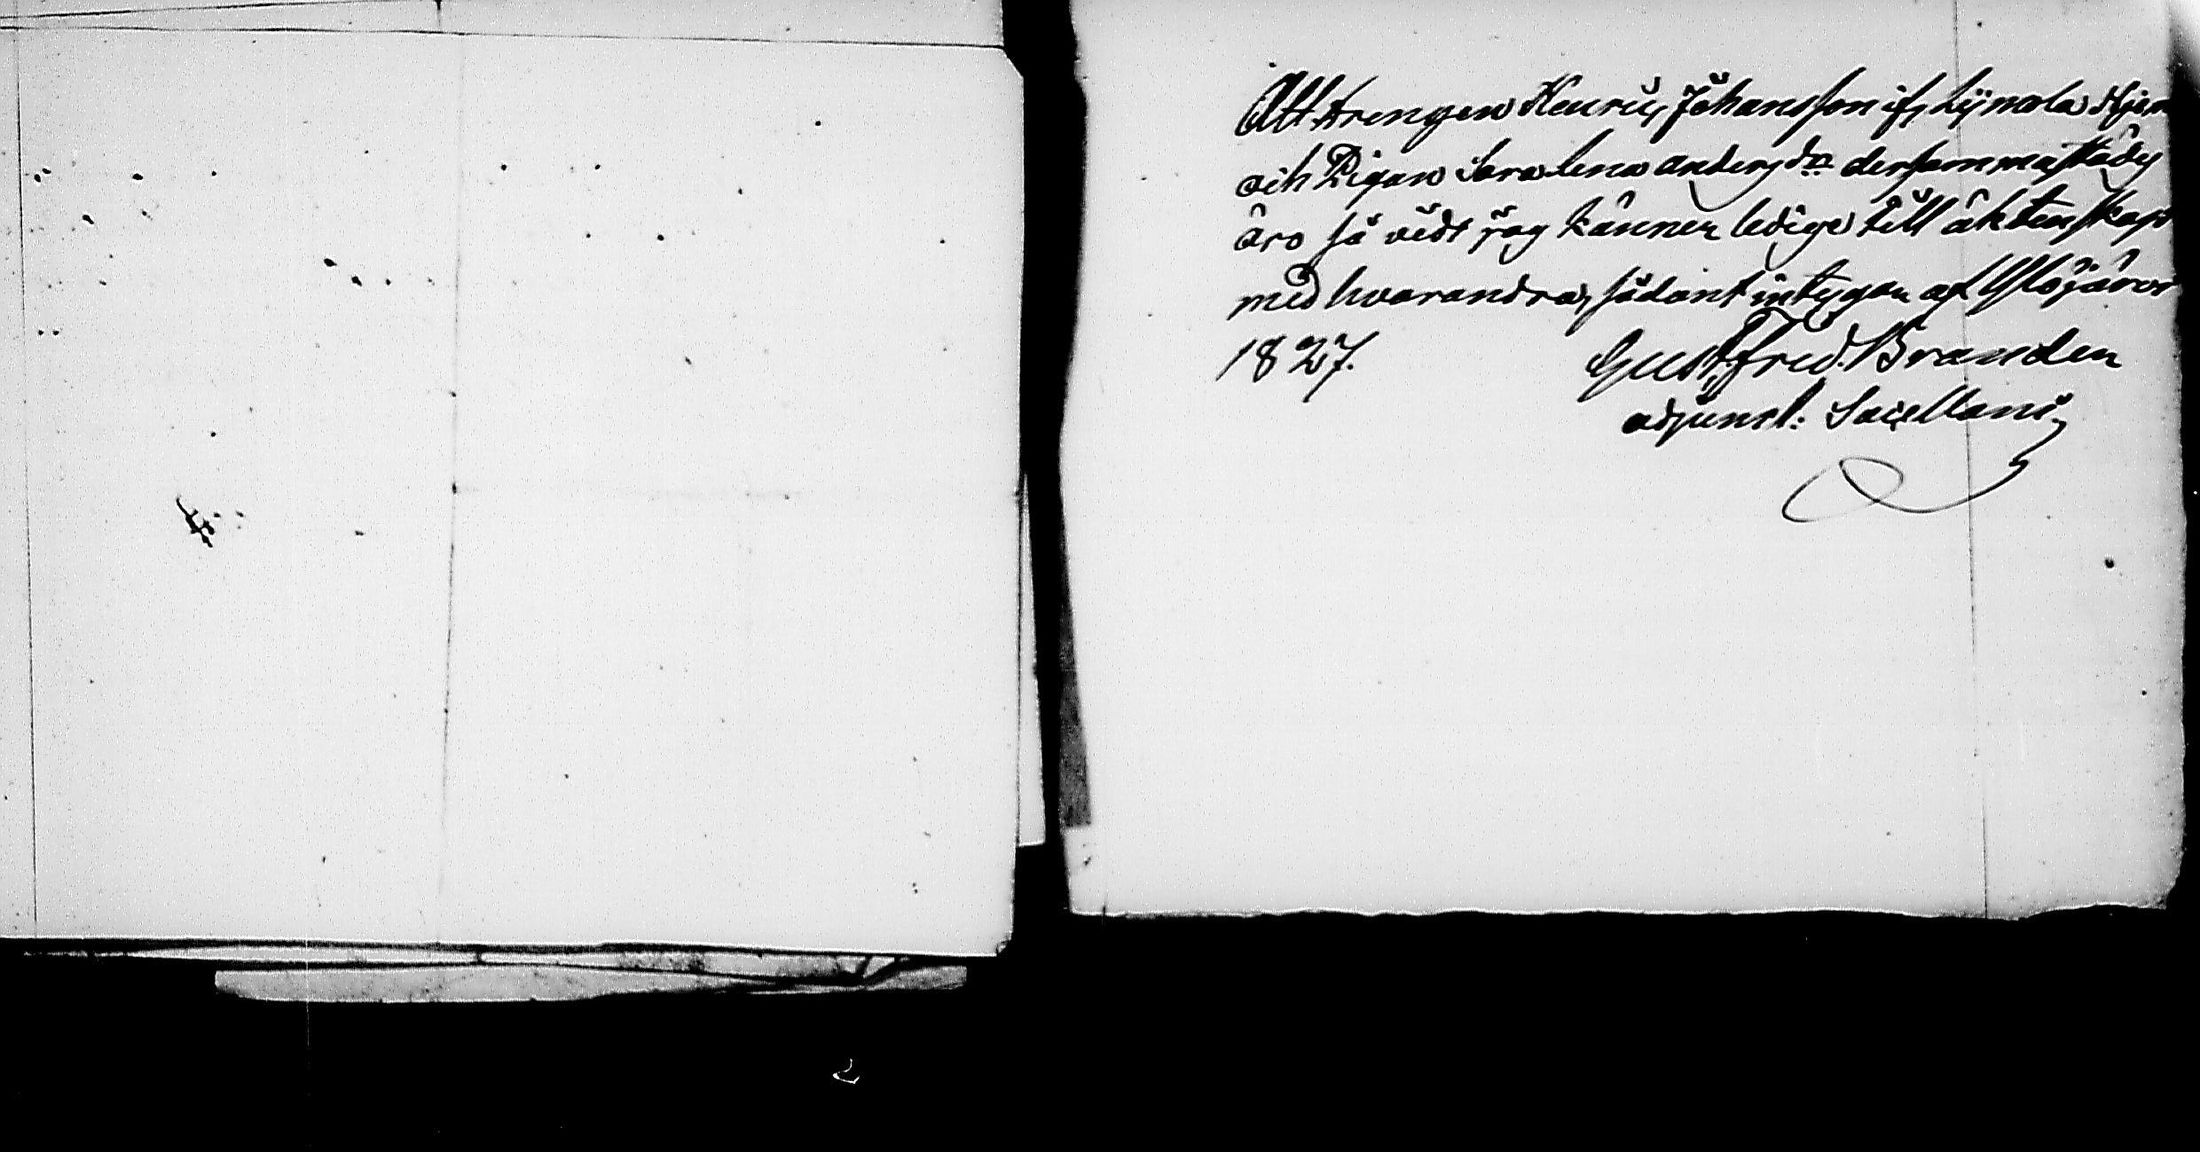 Att Drengen Henric Johansson ifr. Lymola
och Pigan Sara Lena Andersdr. dersammastädes
äro så vidt jag känner ledige till äktenskap
med hvarandra, sådant intygar af Ylöjärvi
1827. Gust. Fred. Branden
adjunct: Sacellani